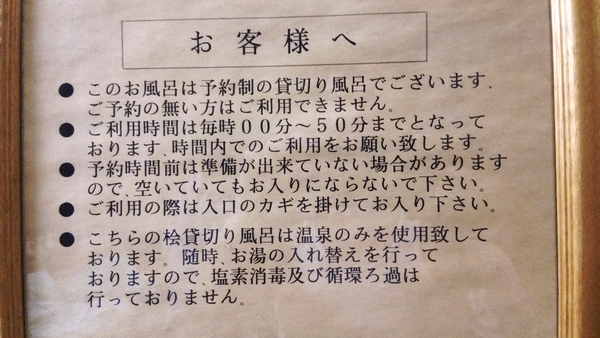 お客様へ
● このお風呂は予約制の貸切り風呂でございます、
ご予約の無い方はご利用できません。
● ご利用時間は毎時００分～５０分までとなって
おります、時間内でのご利用をお願い致します。
● 予約時間前は準備が出来ていない場合があります
ので、空いていてもお入りにならないで下さい。
● ご利用の際は入口のカギを掛けてお入り下さい。
● こちらの桧貸切り風呂は温泉のみを使用致して
おります。随時、お湯の入れ替えを行って
おりますので、塩素消毒及び循環ろ過は
行っておりません。